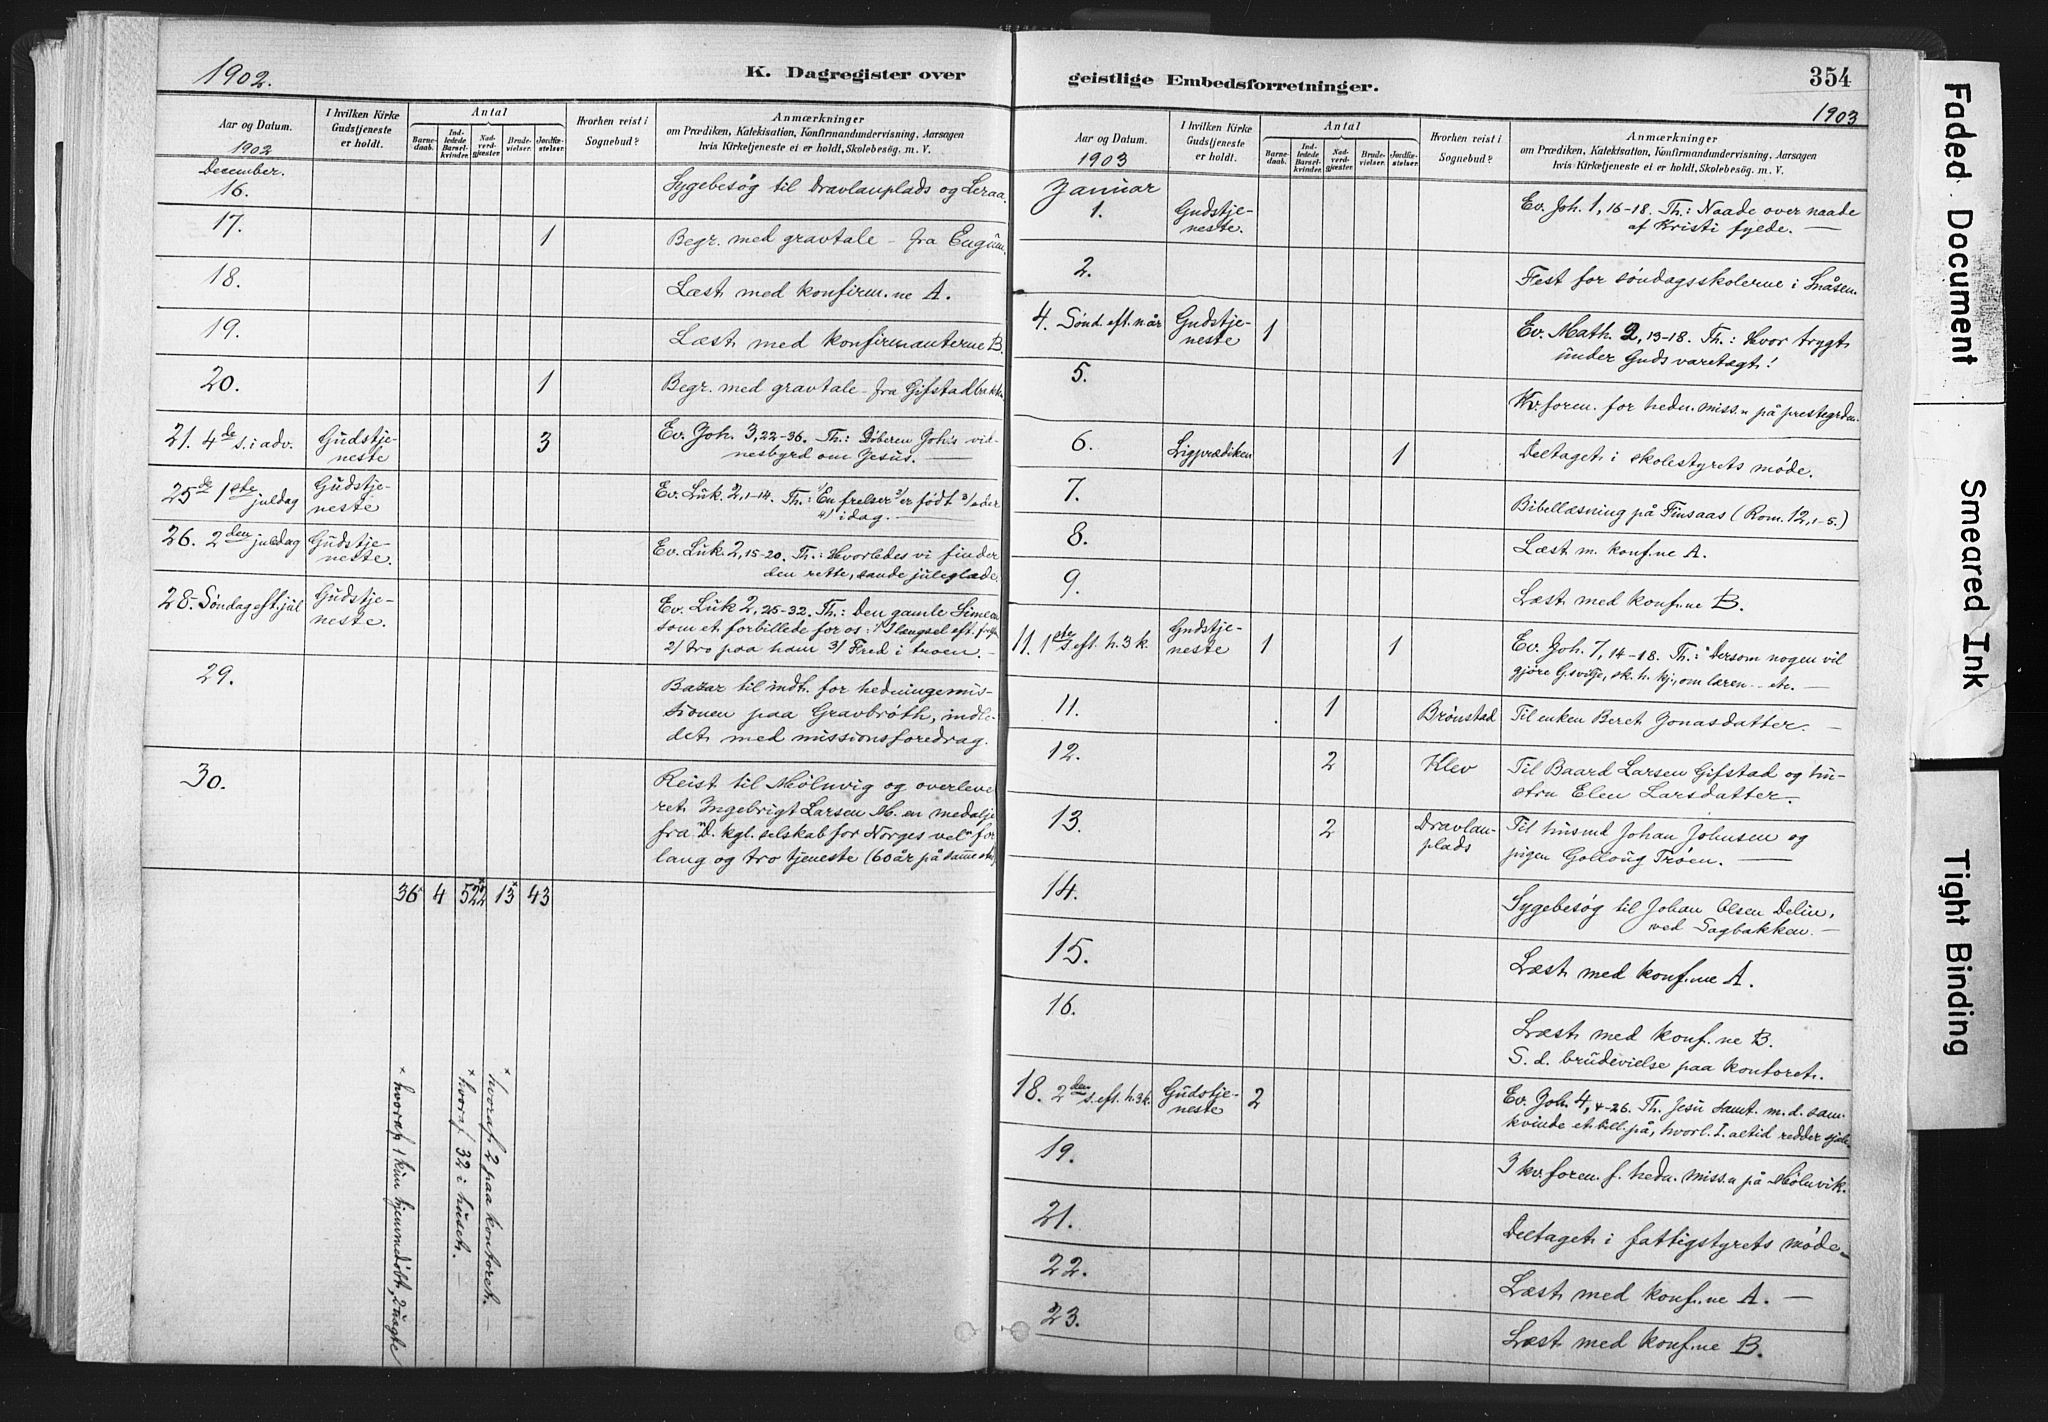 1902.
K. Dagregister over
Aar og Datum.
I hvilken Kirke Gudstjeneste er holdt.
Antal
Barnedaab.
Indledede Barselkvinder.
Nadverdgjester
Brudevielser.
Jordfæstelser.
Hvorhen reist i Sognebud?
Anmærkninger
om Prædiken, Katekisation, Konfirmandundervisning, Aarsagen
hvis Kirketjeneste ei er holdt, Skolebesøg. m. V.
1902
December.
16. Sygebesøg til Dravlanplads og Leraa.
17. 1 Begr. med gravtale – fra
18. Læst med konfirm.ne A.
19. Læst med konfirmanterne B.
20. 1 Begr. med gravtale – fra Gifstadbakk
21. 4de s. i adv. Gudstjeneste 3 Ev. Joh. 3,22-36. Th.: Døberen Joh's vid-
nesbyrd om Jesus. —
25de 1ste juldag Gudstjeneste Ev. Luk. 2,1-14. Th.: 1/ En frelser 2/ er født 3/ eder
4/ idag.
26. 2den juldag Gudstjeneste. Ev. Luk. 2,15-20. Th.: Hvorledes vi finder
den rette, sande juleglæde.
28. Søndag eft. jul Gudstjeneste. Ev. Luk 2,25-32. Th.: Den gamle Simeon
som et forbillede for os: 1/ I længsel eft.
2/ tro paa ham 3/ Fred i troen. –
29. Bazar til indt. for hedningemis-
sionen paa Gravbrøth, indle-
det med missionsforedrag.
30. Reist til Mølnvig og overleve
ret Ingebrigt Larsen M. en medalje
fra "D. kgl. selskab for Norges vel" for
lang og tro tjeneste (60 år på samme sted)
36 4 522× 13× 43
× hvoraf 1 kun hjemmedøbt, 2 uægte
× hvoraf 32 i huset. –
× hvoraf 2 paa kontoret. –
geistlige Embedsforretninger.
354
1903
Aar og Datum.
I hvilken Kirke Gudstjeneste er holdt.
Antal
Barnedaab.
Indledede Barselkvinder.
Nadverdgjester
Brudevielser.
Jordfæstelser.
Hvorhen reist i Sognebud?
Anmærkninger
om Prædiken, Katekisation, Konfirmandundervisning, Aarsagen
hvis Kirketjeneste ei er holdt, Skolebesøg. m. V.
1903
Januar
1. Gudstjeneste. Ev. Joh. 1,16-18. Th.: Naade over naade
af Kristi fylde. —
2. Fest for søndagsskolerne i Snåsen.
4. Sønd. eft. n år Gudstjeneste 1 Ev. Math. 2,13-18. Th.: Hvor trygt
under Guds varetægt!
5. Kv.foren. for hedn.miss.n på prestegrden.
6. Ligprædiken 1 Deltaget i skolestyrets møde.
7. Bibellæsning på Finsaas (Rom. 12,1-5.)
8. Læst m. konf.ne A.
9. Læst med konf.ne B.
11. 1ste s. eft. h. 3 k. Gudstjeneste 1 1 Ev. Joh. 7,14-18. Th.: "Dersom nogen vil
gjøre G.s vilje, sk. h. kj., om læren – etc. —
11. 1 Brønstad Til enken Beret Jonasdatter. —
12. 2 Klev Til Baard Larsen Gifstad og hu-
stru Elen Larsdatter. —
13. 2 Dravlanplads Til husmd Johan Johnsen og
pigen Gollaug Trøen. —
14. Sygebesøg til Johan Olsen Delin,
ved Sagbakken. –
15. Læst med konf.ne A.
16. Læst med konf.ne B.
S. d. brudevielse paa kontoret.
18. 2den s. eft. h. 3 k. Gudstjeneste 2 Ev. Joh. 4,4-26. Th. Jesu samt. m. d. sam.
kvinde et bill. på, hvorl. I. altid redder sjæle
19. I kv.foren. f. hedn. miss.n på Mølnvik.
21. Deltaget i fattigstyrets møde. –
22. Læst med konf.ne A. —
23. Læst med konf.ne B.
Faded Document
Smeared Ink
Tight Binding